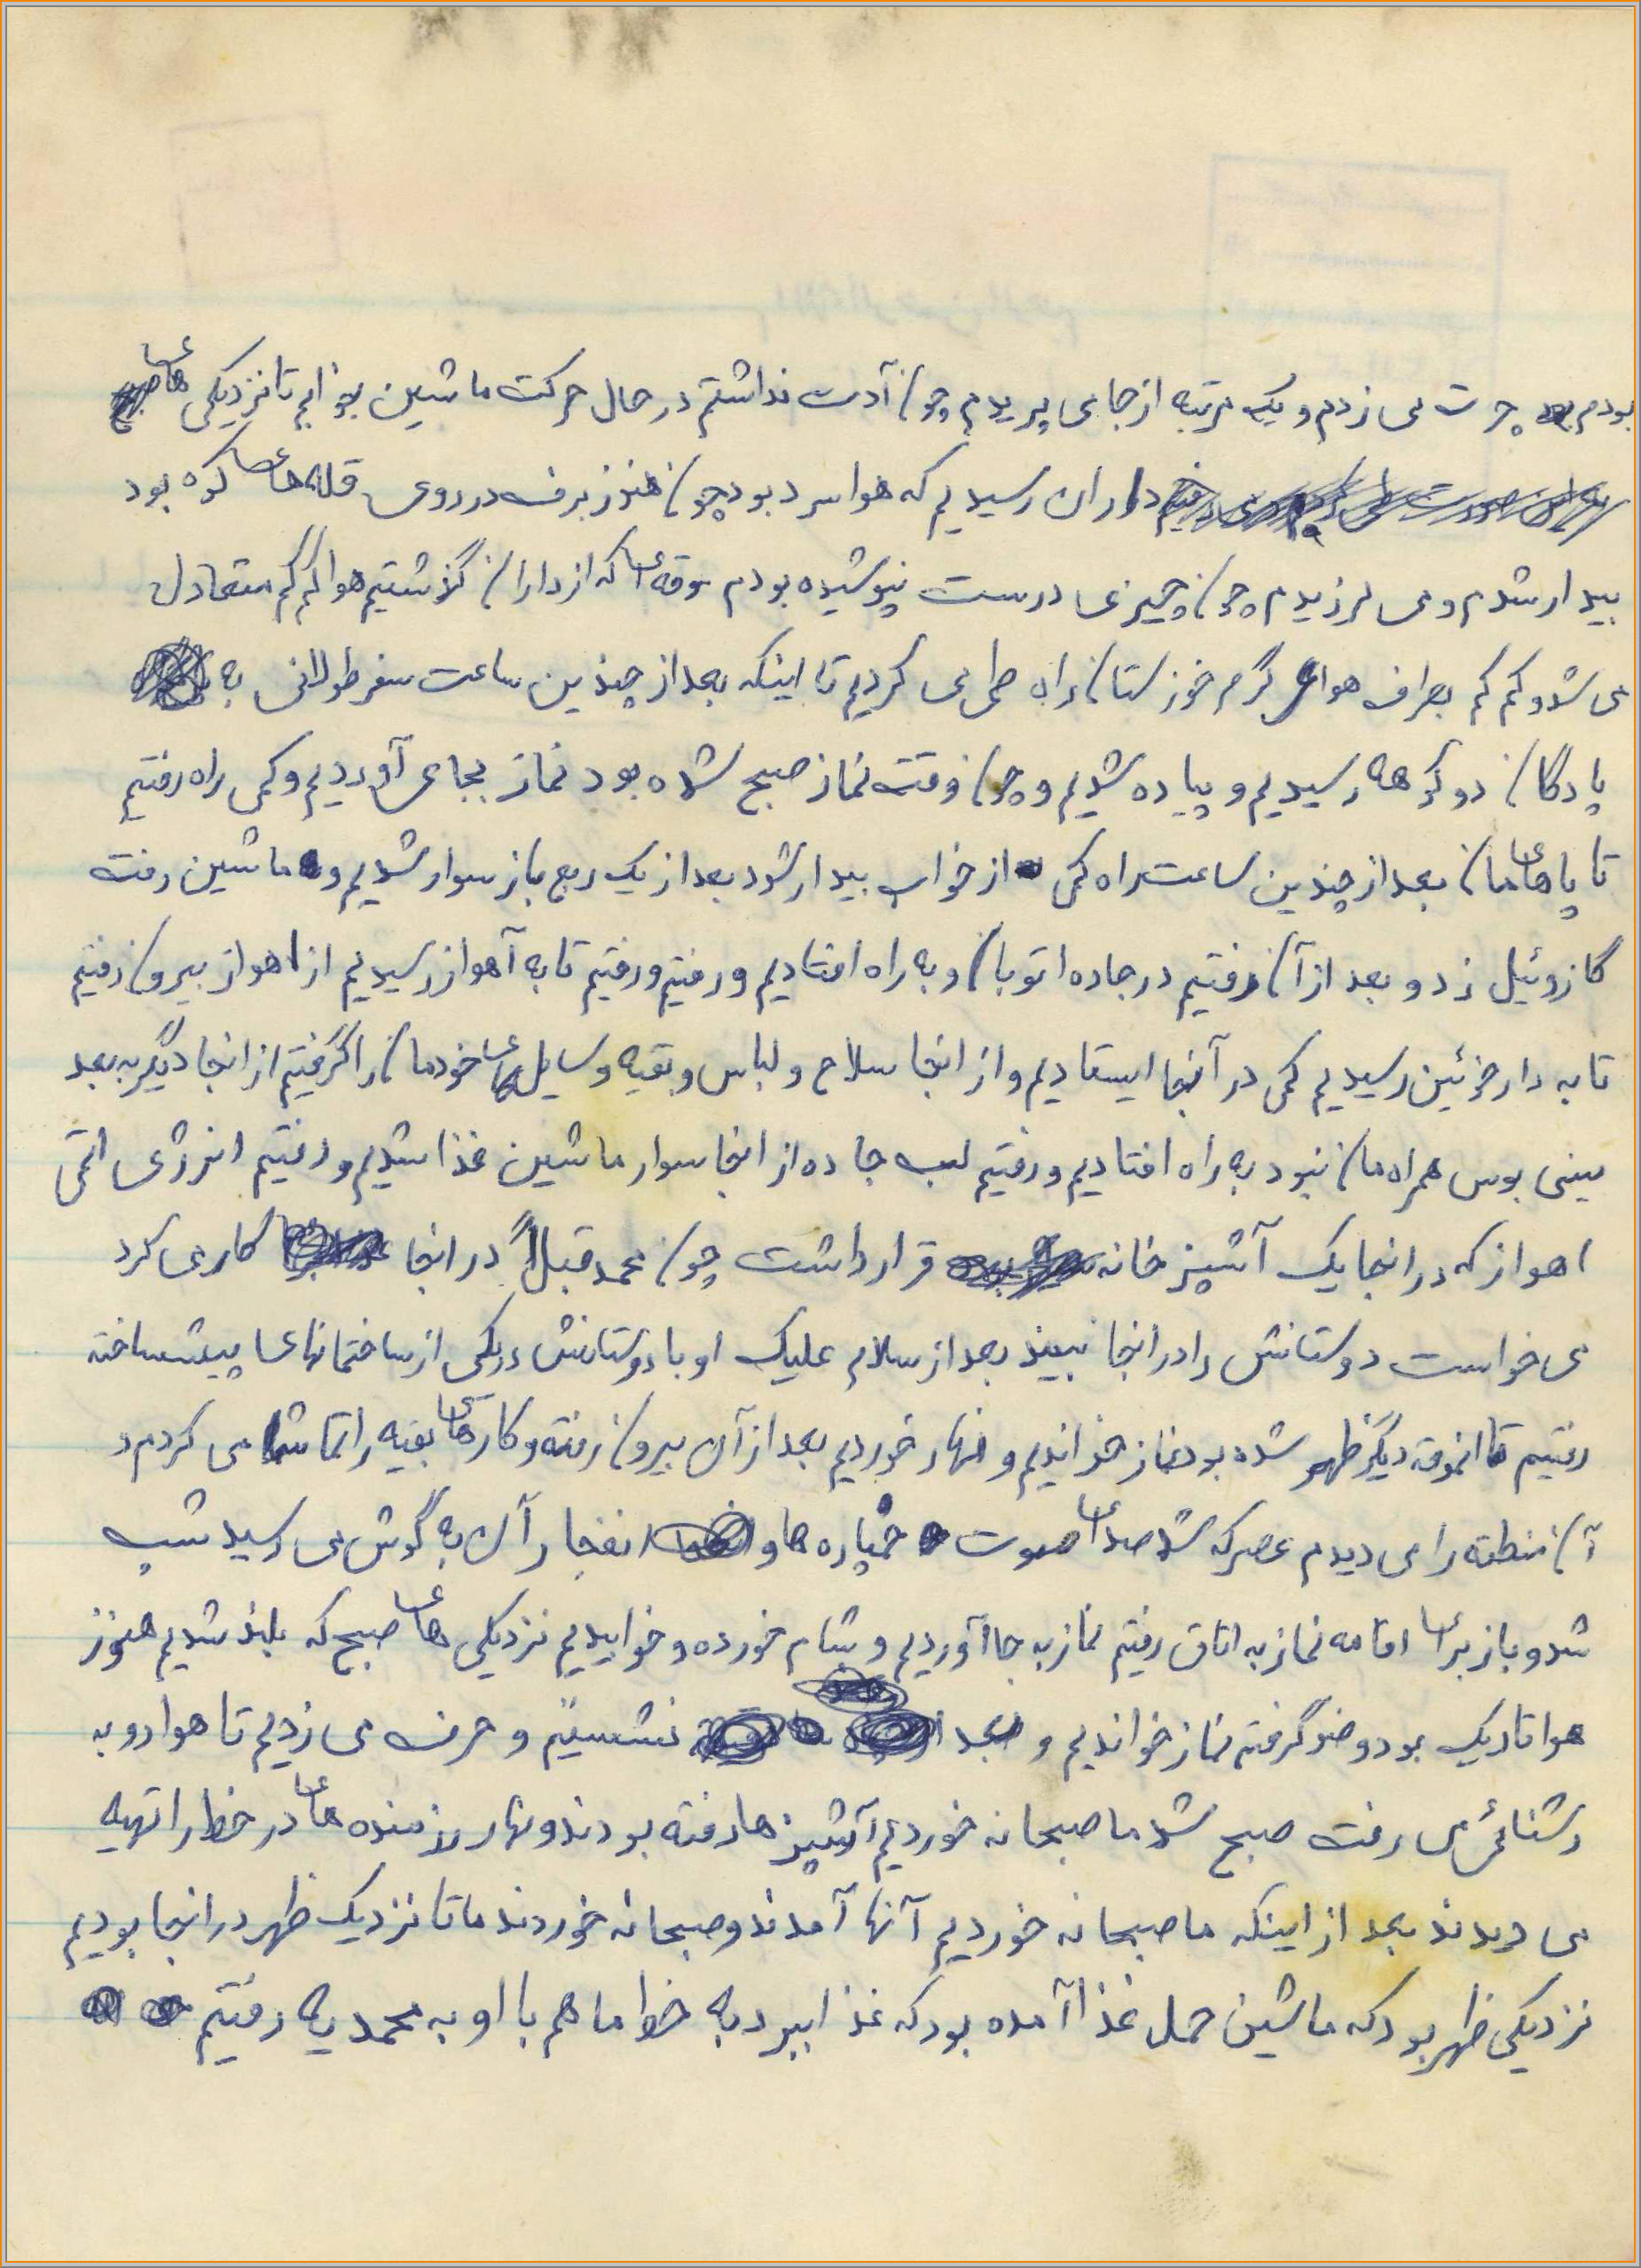 بودم چرت می زدم و یک مرتبه از جا می پریدم چون آدت نداشتم در حال حرکت ماشین بخوابم تا نزدیکی های
داران رسیدیم که هوا سرد بود چون هنوز برف در روی قله های کوه بود
بیدار شدم و می لرزیدم چون چیزی درست نپوشیده بودم موقه ای که از داران گذشتیم هوا کم کم متعادل
می شد و کم کم بطرف هوای گرم خوزستان راه طی می کردیم تا اینکه بعد از چندین ساعت سفر طولانی به
پادگان دو کوهه رسیدیم و پیاده شدیم و چون وقت نماز صبح شده بود نماز بجای آوردیم و کمی راه رفتیم
تا پاهای مان بعد از چندین ساعت راه کمی از خواب بیدار شود بعد از یک ربع باز سوار شدیم و ماشین رفت
گازوئیل زد و بعد از آن رفتیم در جاده اتوبان و به راه افتادیم و رفتیم و رفتیم تا به آهواز رسیدیم از اهواز بیرون رفتیم
تا به دارخوئین رسیدیم کمی در آنجا ایستادیم و از انجا سلاح و لباس و بقیه وسایل های خودمان را گرفتیم از انجا دیگر به بعد
مینی بوس همراه مان نبود به راه افتادیم و رفتیم لب جاده از انجا سوار ماشین غذا شدیم و رفتیم انرژی اتمی
اهواز که در انجا یک آشپزخانه قرار داشت چون محمد قبلاً در انجا کار می کرد
می خواست دوستانش را در انجا ببیند بعد از سلام علیک او با دوستانش در یکی از ساختمانهای پیش ساخته
رفتیم تا انموقه دیگر ظهر شده بود نماز خواندیم و نهار خوردیم بعد از آن بیرون رفته و کارهای بقیه را تماشا می کردم و
آن منطقه را می دیدم عصر که شد صدای صوت خمپاره ها و انفجار آن به گوش می رسید شب
شد و باز برای اقامه نماز به اتاق رفتیم نماز به جا آوردیم و شام خورده و خوابیدیم نزدیکی های صبح که بلند شدیم هنوز
هوا تاریک بود وضو گرفته نماز خواندیم و بعد نشستیم و حرف می زدیم تا هوا رو به
رشنائی می رفت صبح شد ما صبحانه خوردیم آشپزها رفته بودند و نهار رزمنده های در خط را تهیه
می دیدند بعد از اینکه ما صبحانه خوردیم آنها آمدند و صبحانه خوردند ما تا نزدیک ظهر در انجا بودیم
نزدیکی ظهر بود که ماشین حمل غذا آمده بود که غذا ببرد به خط ما هم با او به محمدیه رفتیم